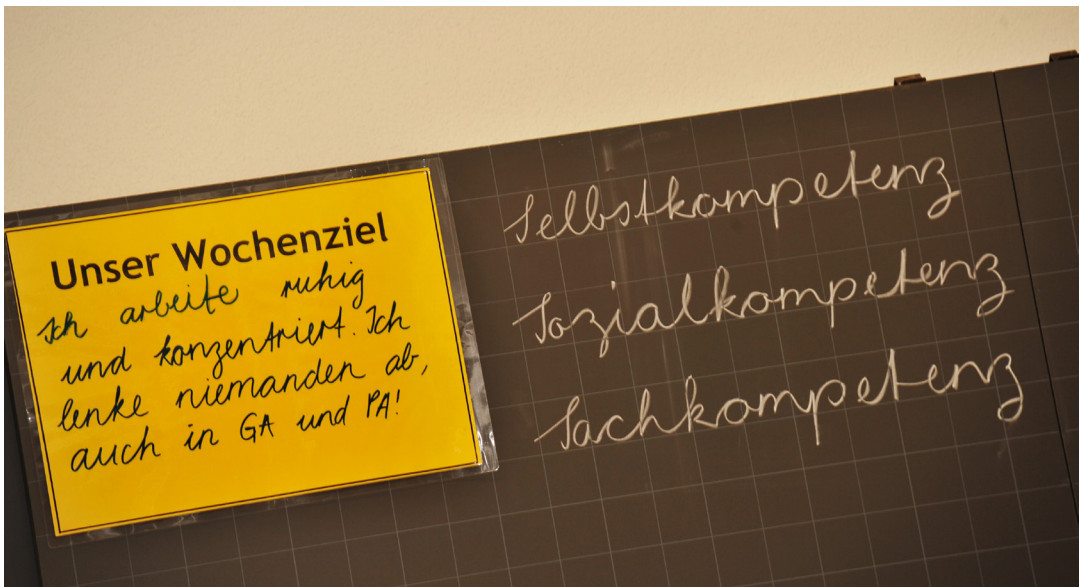 Unser Wochenziel
Ich arbeite ruhig
und konzentriert. Ich
lenke niemanden ab,
auch in GA und PA!
Selbstkompetenz
Sozialkompetenz
Sachkompetenz